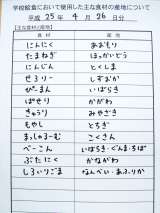 学校給食において使用した主な食材の産地について
平成 25 年 4 月 26 日分
【主な食材の産地】
食材 産地
にんにく あおもり
たまねぎ ほっかいどう
にんじん とくしま
せろりー しずおか
ぴーまん いばらき
ぱせり かがわ
きゅうり みやざき
もやし とちぎ
まっしゅるーむ こくさん
べーこん いばらき・ぐんま・ちば
ぶたにく かながわ
しろいりごま なんべい・あふりか